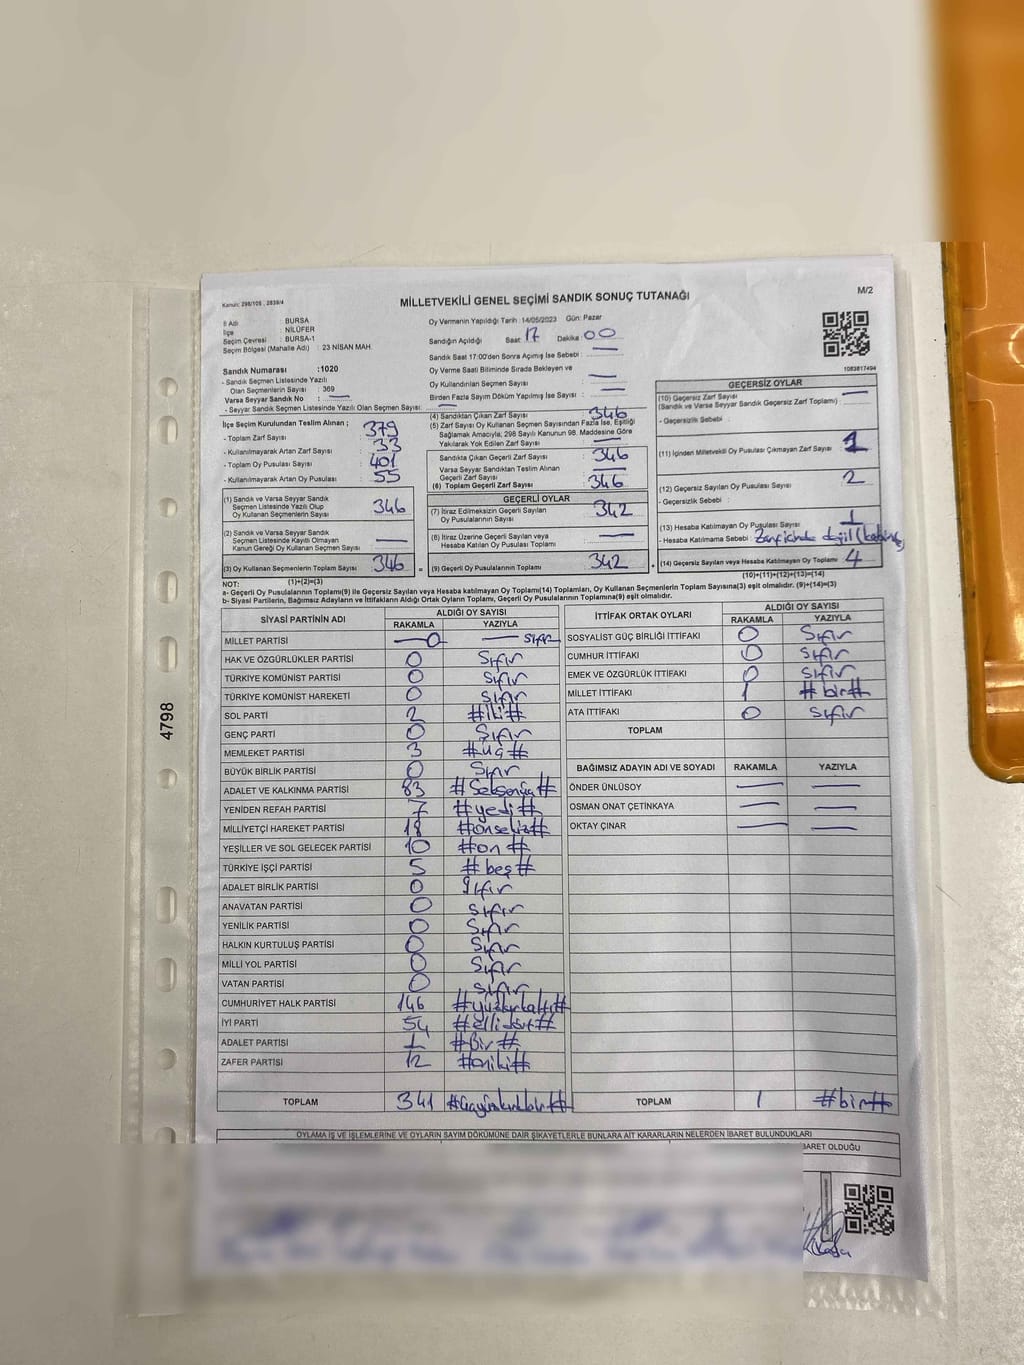 Kanun: 298/105 , 2839/4
M/2
MİLLETVEKİLİ GENEL SEÇİMİ SANDIK SONUÇ TUTANAĞI
İl Adı : BURSA
İlçe : NİLÜFER
Seçim Çevresi : BURSA-1
Seçim Bölgesi (Mahalle Adı) : 23 NİSAN MAH.
Oy Vermenin Yapıldığı Tarih :14/05/2023 Gün: Pazar
Sandığın Açıldığı Saat: 17 Dakika: 00
Sandık Saat 17:00'den Sonra Açılmış İse Sebebi : —
Oy Verme Saati Bitiminde Sırada Bekleyen ve
Oy Kullandırılan Seçmen Sayısı : —
Birden Fazla Sayım Döküm Yapılmış İse Sayısı : —
1083817494
Sandık Numarası :1020
- Sandık Seçmen Listesinde Yazılı
Olan Seçmenlerin Sayısı : 369
Varsa Seyyar Sandık No : —
- Seyyar Sandık Seçmen Listesinde Yazılı Olan Seçmen Sayısı: —
İlçe Seçim Kurulundan Teslim Alınan ;
- Toplam Zarf Sayısı : 379
- Kullanılmayarak Artan Zarf Sayısı : 33
- Toplam Oy Pusulası Sayısı : 401
- Kullanılmayarak Artan Oy Pusulası : 55
(1) Sandık ve Varsa Seyyar Sandık
Seçmen Listesinde Yazılı Olup
Oy Kullanan Seçmenlerin Sayısı : 346
(2) Sandık ve Varsa Seyyar Sandık
Seçmen Listesinde Kayıtlı Olmayan
Kanun Gereği Oy Kullanan Seçmen Sayısı : —
(3) Oy Kullanan Seçmenlerin Toplam Sayısı : 346
(1)+(2)=(3)
(4) Sandıktan Çıkan Zarf Sayısı : 346
(5) Zarf Sayısı Oy Kullanan Seçmen Sayısından Fazla İse, Eşitliği
Sağlamak Amacıyla; 298 Sayılı Kanunun 98. Maddesine Göre
Yakılarak Yok Edilen Zarf Sayısı : —
Sandıkta Çıkan Geçerli Zarf Sayısı : 346
Varsa Seyyar Sandıktan Teslim Alınan
Geçerli Zarf Sayısı : —
(6) Toplam Geçerli Zarf Sayısı : 346
GEÇERLİ OYLAR
(7) İtiraz Edilmeksizin Geçerli Sayılan
Oy Pusulalarının Sayısı : 342
(8) İtiraz Üzerine Geçerli Sayılan veya
Hesaba Katılan Oy Pusulası Toplamı : —
(9) Geçerli Oy Pusulalarının Toplamı : 342
GEÇERSİZ OYLAR
(10) Geçersiz Zarf Sayısı : —
(Sandık ve Varsa Seyyar Sandık Geçersiz Zarf Toplamı)
- Geçersizlik Sebebi :
(11) İçinden Milletvekili Oy Pusulası Çıkmayan Zarf Sayısı : 1
(12) Geçersiz Sayılan Oy Pusulası Sayısı : 2
- Geçersizlik Sebebi :
(13) Hesaba Katılmayan Oy Pusulası Sayısı : 1
- Hesaba Katılmama Sebebi : Zarf içinde değil
(14) Geçersiz Sayılan veya Hesaba Katılmayan Oy Toplamı : 4
(10)+(11)+(12)+(13)=(14)
NOT:
a- Geçerli Oy Pusulalarının Toplamı(9) ile Geçersiz Sayılan veya Hesaba katılmayan Oy Toplamı(14) Toplamları, Oy Kullanan Seçmenlerin Toplam Sayısına(3) eşit olmalıdır. (9)+(14)=(3)
b- Siyasi Partilerin, Bağımsız Adayların ve İttifakların Aldığı Ortak Oyların Toplamı, Geçerli Oy Pusulalarının Toplamına(9) eşit olmalıdır.
SİYASİ PARTİNİN ADI ALDIĞI OY SAYISI
RAKAMLA YAZIYLA
MİLLET PARTİSİ —0 — SIFIR
HAK VE ÖZGÜRLÜKLER PARTİSİ 0 Sıfır
TÜRKİYE KOMÜNİST PARTİSİ 0 Sıfır
TÜRKİYE KOMÜNİST HAREKETİ 0 Sıfır
SOL PARTİ 2 #iki#
GENÇ PARTİ 0 Sıfır
MEMLEKET PARTİSİ 3 #üç#
BÜYÜK BİRLİK PARTİSİ 0 Sıfır
ADALET VE KALKINMA PARTİSİ 83 #Seksenüç#
YENİDEN REFAH PARTİSİ 7 #yedi#
MİLLİYETÇİ HAREKET PARTİSİ 18 #onsekiz#
YEŞİLLER VE SOL GELECEK PARTİSİ 10 #on#
TÜRKİYE İŞÇİ PARTİSİ 5 #beş#
ADALET BİRLİK PARTİSİ 0 Sıfır
ANAVATAN PARTİSİ 0 Sıfır
YENİLİK PARTİSİ 0 Sıfır
HALKIN KURTULUŞ PARTİSİ 0 Sıfır
MİLLİ YOL PARTİSİ 0 Sıfır
VATAN PARTİSİ 0 Sıfır
CUMHURİYET HALK PARTİSİ 146 #yüzkırkaltı#
İYİ PARTİ 54 #ellidört#
ADALET PARTİSİ 1 #Bir#
ZAFER PARTİSİ 12 #oniki#
TOPLAM 341 #üçyüzkırkbir#
İTTİFAK ORTAK OYLARI ALDIĞI OY SAYISI
RAKAMLA YAZIYLA
SOSYALİST GÜÇ BİRLİĞİ İTTİFAKI 0 Sıfır
CUMHUR İTTİFAKI 0 Sıfır
EMEK VE ÖZGÜRLÜK İTTİFAKI 0 Sıfır
MİLLET İTTİFAKI 1 #bir#
ATA İTTİFAKI 0 Sıfır
TOPLAM
BAĞIMSIZ ADAYIN ADI VE SOYADI RAKAMLA YAZIYLA
ÖNDER ÜNLÜSOY — —
OSMAN ONAT ÇETİNKAYA — —
OKTAY ÇINAR — —
TOPLAM 1 #bir#
OYLAMA İŞ VE İŞLEMLERİNE VE OYLARIN SAYIM DÖKÜMÜNE DAİR ŞİKAYETLERLE BUNLARA AİT KARARLARIN NELERDEN İBARET BULUNDUKLARI
BARET OLDUĞU
4798